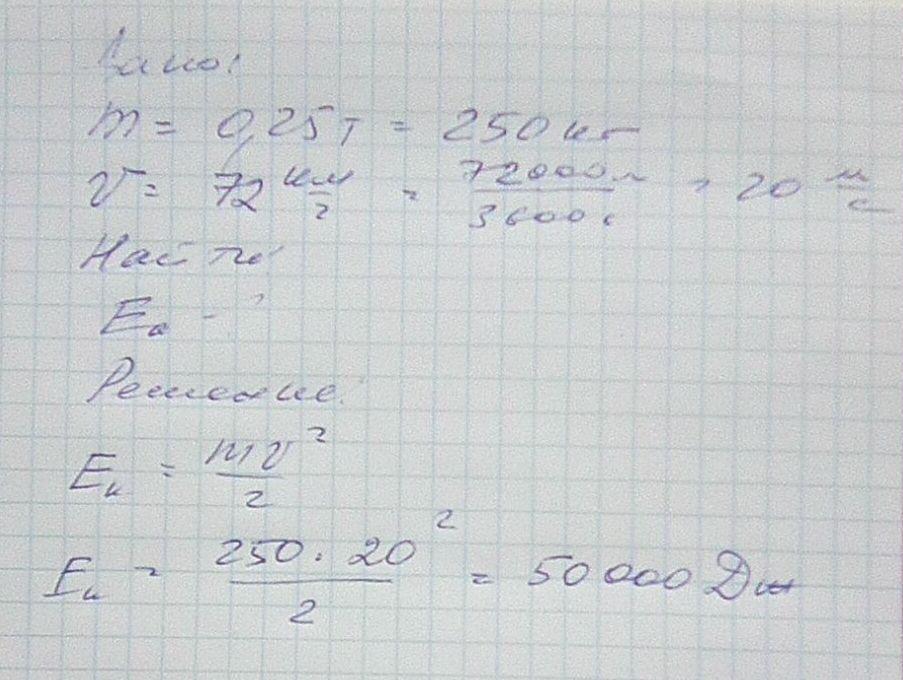 Дано:
m = 0,25т = 250 кг
v = 72 км/ч = 72000м/3600с = 20 м/с
Найти
Eк - ?
Решение:
Eк = mv²/2
Eк = 250 · 20²/2 = 50 000 Дж